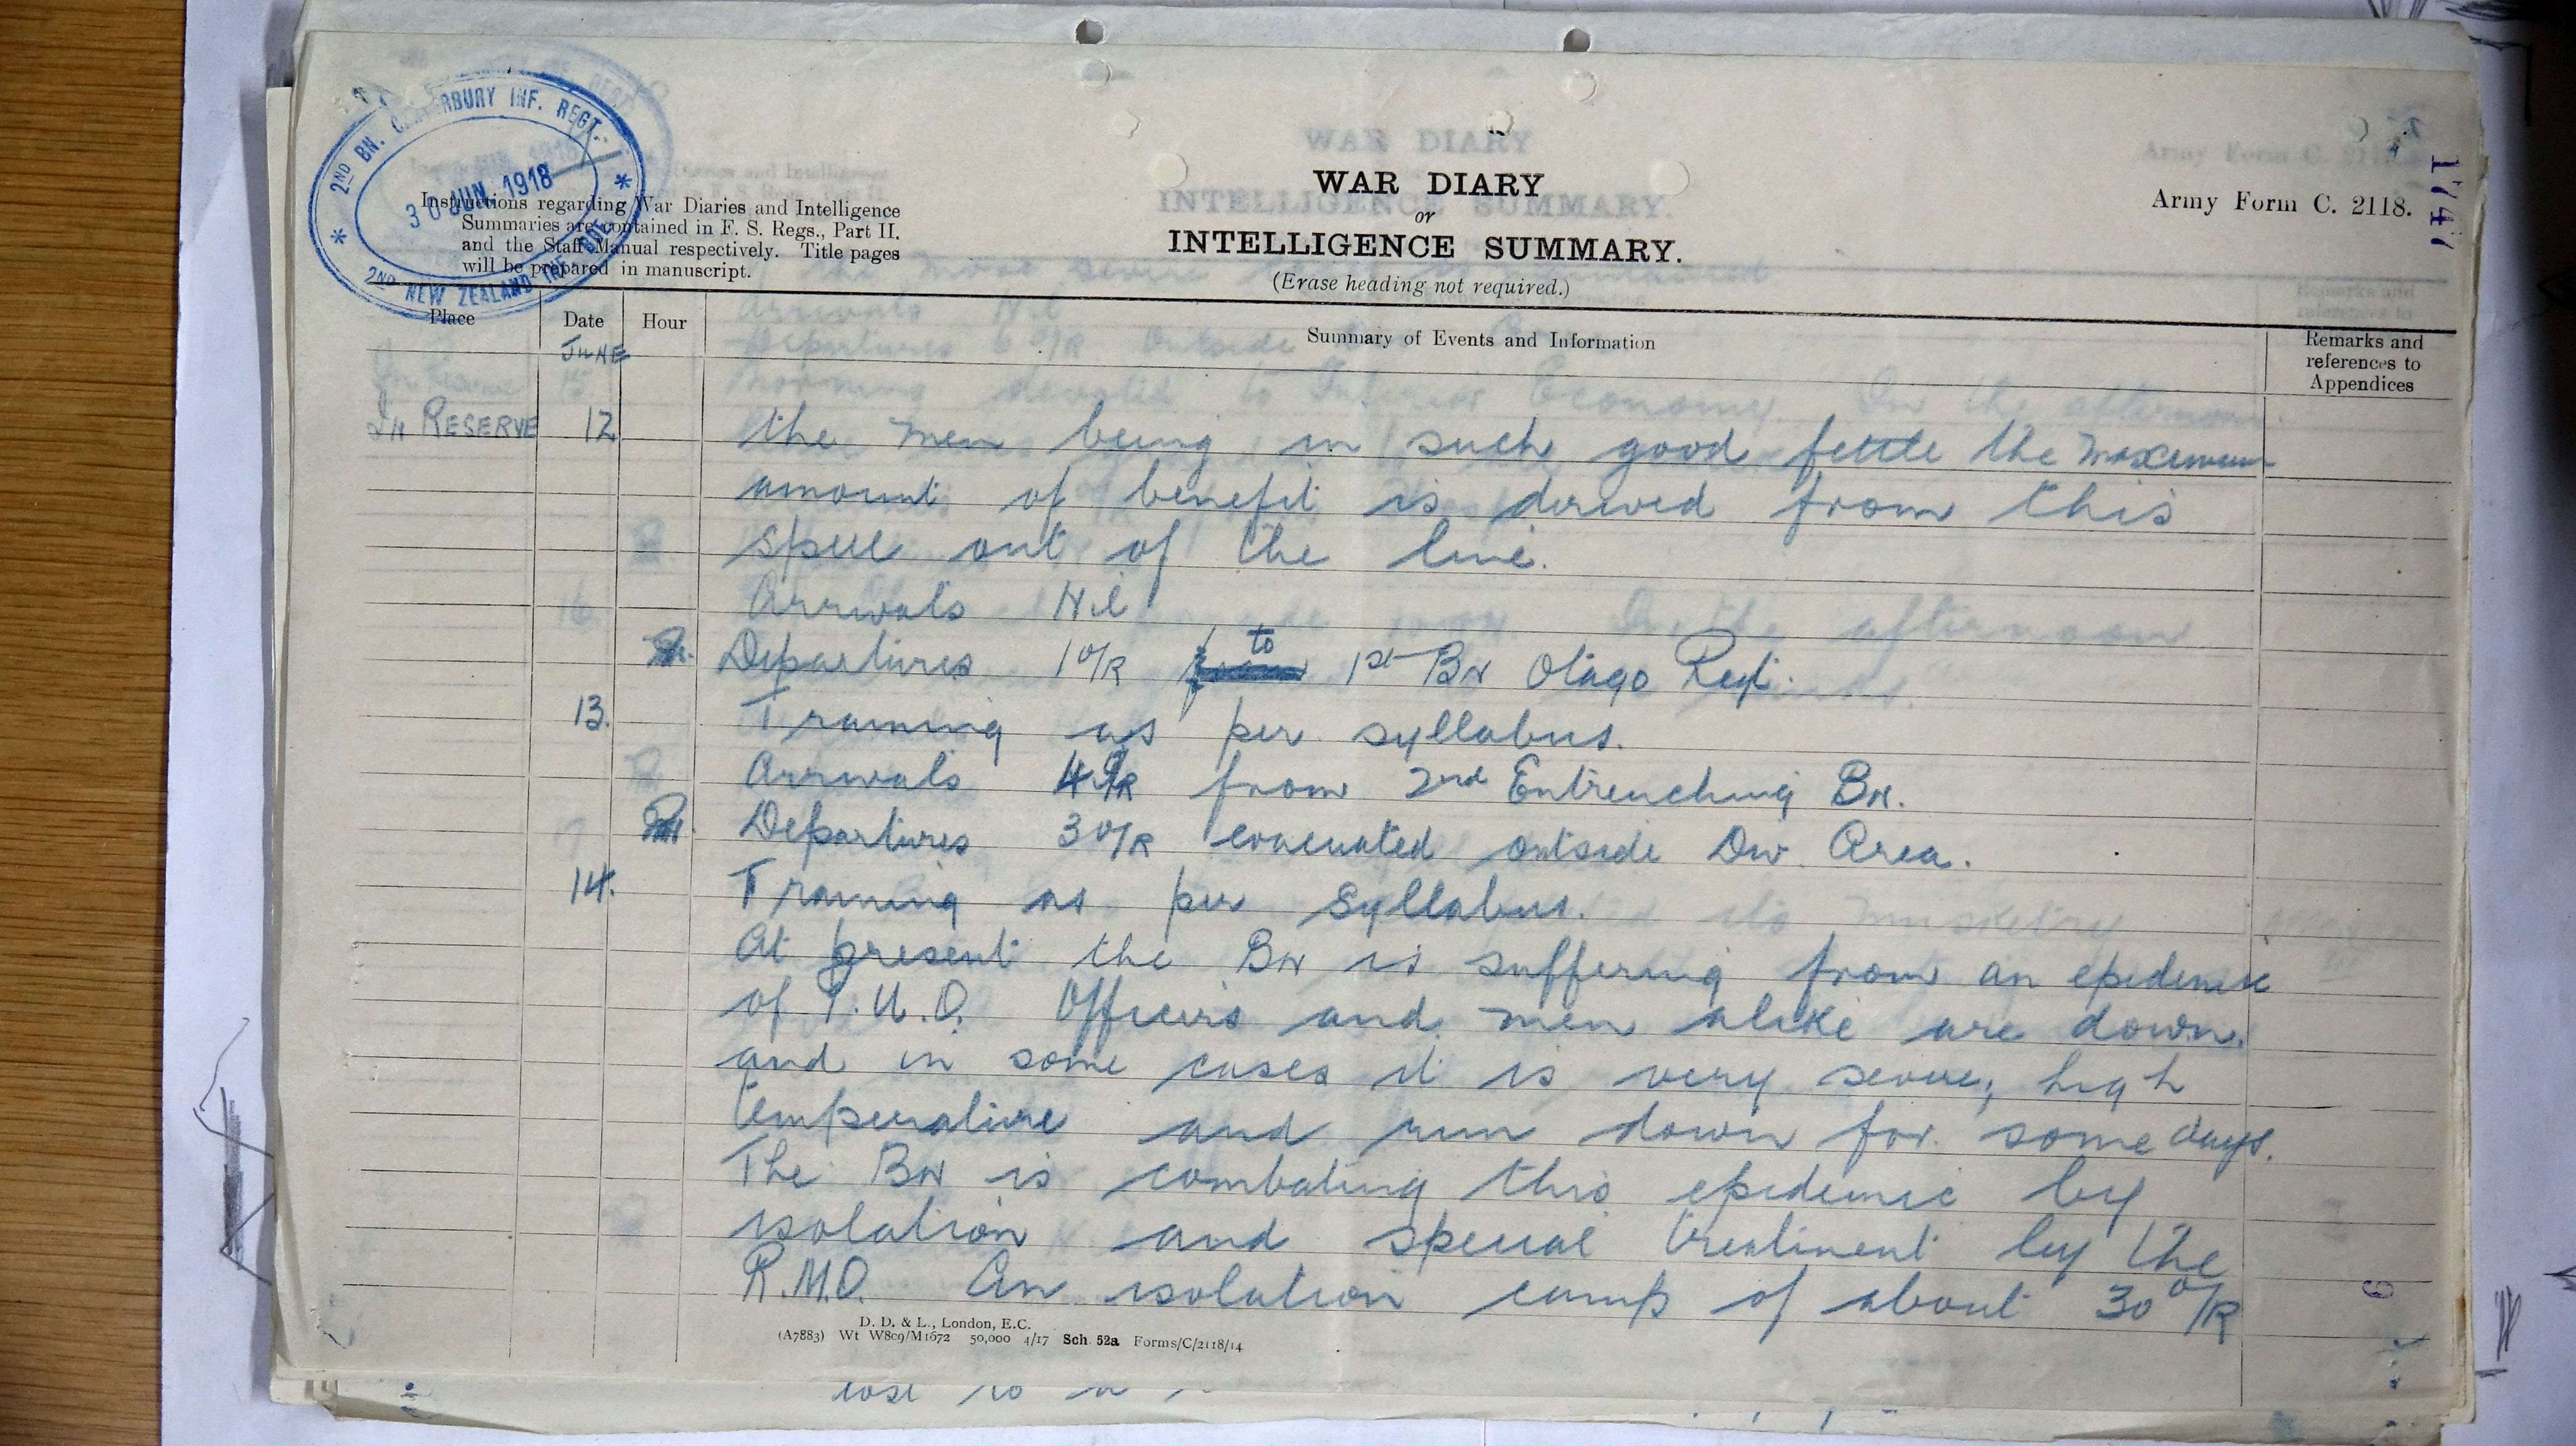 2ND BN. CANTERBURY INF. REGT.
30 JUN. 1918
2ND NEW ZEALAND INF. BDE.
Instructions regarding War Diaries and Intelligence
Summaries are contained in F. S. Regs., Part II.
and the Staff Manual respectively. Title pages
will be prepared in manuscript.
WAR DIARY
or
INTELLIGENCE SUMMARY.
(Erase heading not required.)
Army Form C. 2118.
1747
Place Date Hour Summary of Events and Information Remarks and
references to
Appendices
JUNE
In RESERVE 12 the men being in such good fettle the maximum
amount of benefit is derived from this
spell out of the line.
Arrivals Nil
Departures 1 O/R to 1st Bn Otago Regt.
13. Training as per syllabus.
Arrivals 4 O/R from 2nd Entrenching Bn.
Departures 3 O/R evacuated outside Div. Area.
14. Training as per syllabus.
At present the Bn is suffering from an epidemic
of P.U.O. Officers and men alike are down.
and in some cases it is very severe, high
temperature and run down for some days.
The Bn is combating this epidemic by
isolation and special treatment by the
R.M.O. An isolation camp of about 30 O/R
D. D. & L., London, E.C.
(A7883) Wt W809/M1672 50,000 4/17 Sch. 52a Forms/C/2118/14